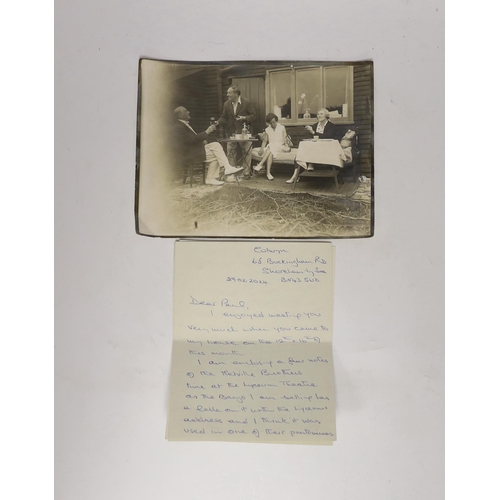 Colwyn
68 Buckingham Rd
Shoreham by Sea
29.02.2024 BN43 5UD
Dear Paul,
I enjoyed meeting you
very much when you came to
my house on the 12th & 16th of
this month
I am enclosing a few notes
of the Melville Brothers
time at the Lyceum Theatre
as the Bargs I am selling has
a label on it with the Lyceum
address and I think it was
used in one of their pantomimes